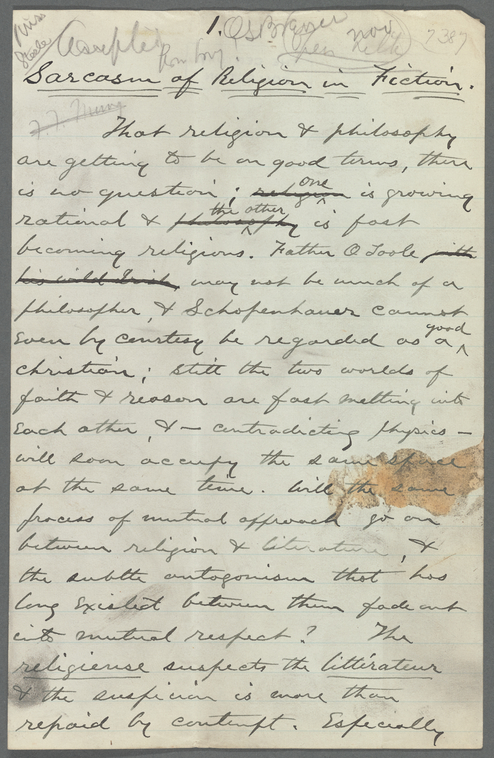 Miss
1. O.S.B.
now
7387
Accepted
Open
Sarcasm of Religion in Fiction.
That religion & philosophy
are getting to be on good terms, there
is no question; religion one is growing
rational & philosophy the other is fast
becoming religious. Father O'Toole, with
his wild Irish, may not be much of a
philosopher, & Schopenhauer cannot
even by courtesy be regarded as a good
christian; still the two worlds of
faith & reason are fast melting into
each other, & — contradicting physics —
will soon occupy the same space
at the same time. Will the same
process of mutual approach go on
between religion & literature, &
the subtle antagonism that has
long existed between them fade out
into mutual respect? The
religieuse suspects the littérateur
& the suspicion is more than
repaid by contempt. Especially